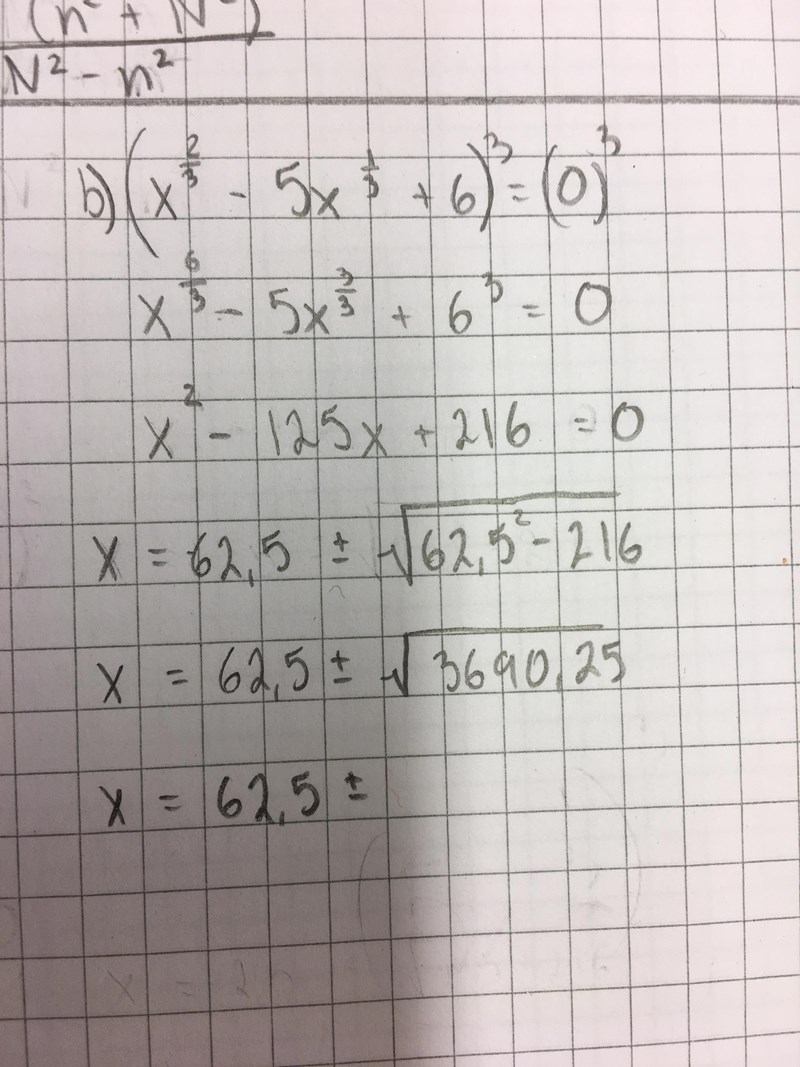 (n² + N²)
N² - n²
b) (x^(2/3) - 5x^(1/3) + 6)³ = (0)³
x^(6/3) - 5x^(3/3) + 6³ = 0
x² - 125x + 216 = 0
x = 62,5 ± √62,5² - 216
x = 62,5 ± √3690,25
x = 62,5 ±